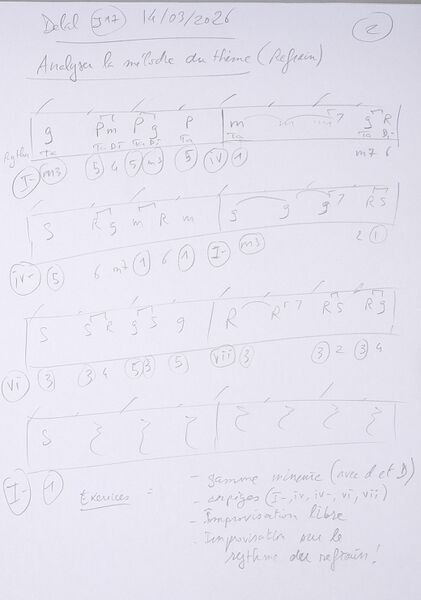 J17 14/03/2026
2
Analyser la mélodie du thème (Refrain)
g Pm Pg P m m m 7 g R
Rythm Ta Ta Di Ta Di Ta Ta Ta Di
I- m3 5 4 5 m3 5 iv 1 m7 6
S R g m R m g g g 7 R S
iv- 5 6 m7 1 6 1 I- m3 2 1
S S R g S g R R 7 R S R g
vi 3 3 4 5 3 5 vii 3 3 2 3 4
S
I- 1
Exercices = - gamme mineure (avec d et D)
- arpèges (I-, iv, iv-, vi, vii)
- Improvisation libre
- Improvisation sur le
rythme du refrain!